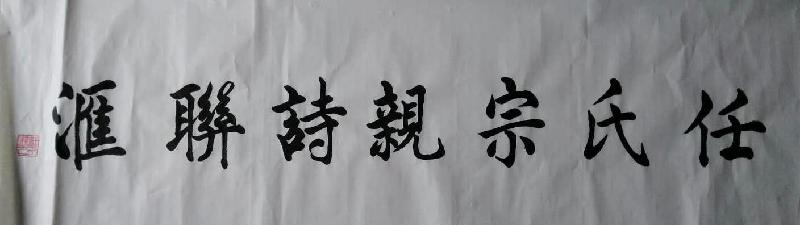 任氏宗親詩聯滙